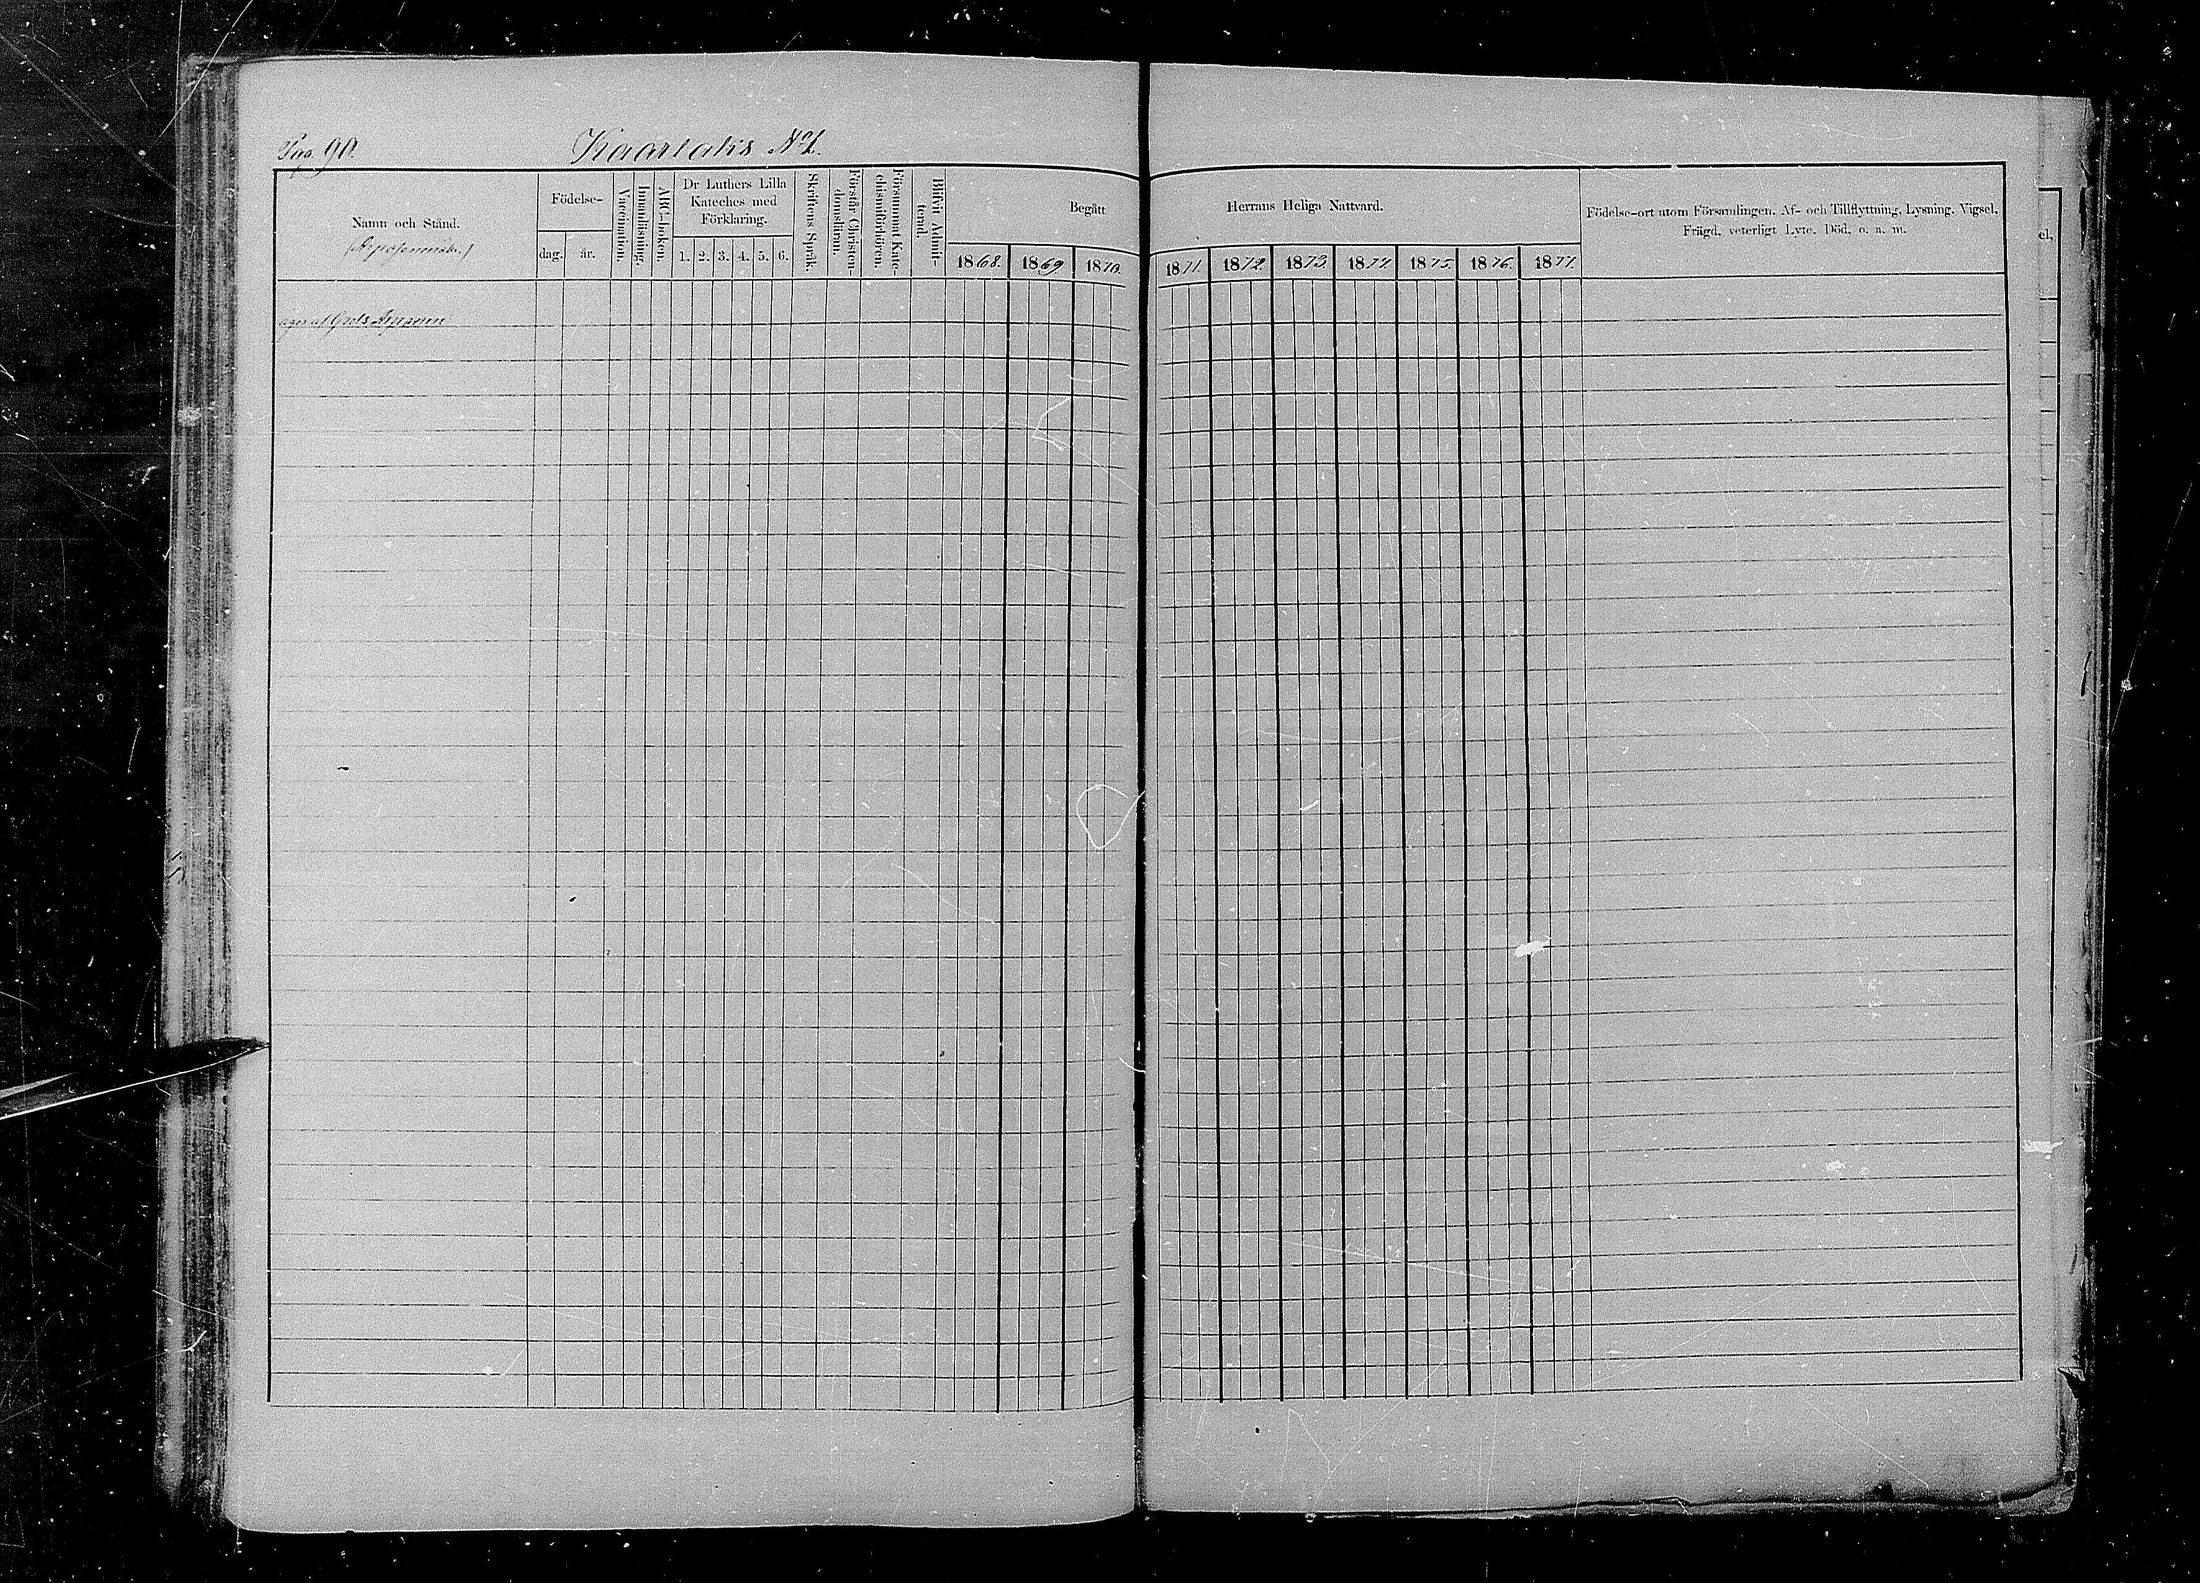 Pag. 90. Kaarlatis No 1.
Namn och Stånd.
Födelse-
dag. år.
Vaccination.
Innanläsning.
ABC-boken.
Dr Luthers Lilla
Kateches med
Förklaring.
1. 2. 3. 4. 5. 6.
Skriftens Språk.
Förstår Christen-
domsläran.
Försummat Kate-
chismiförhören.
Blifvit Admit-
terad.
Begått Herrans Heliga Nattvard.
1868. 1869 1870. 1871. 1872. 1873. 1874 1875. 1876. 1877.
Födelse-ort utom Församlingen, Af- och Tillflyttning, Lysning, Vigsel,
Frägd, veterligt Lyte, Död, o. a. m.
äges af Gods
el,